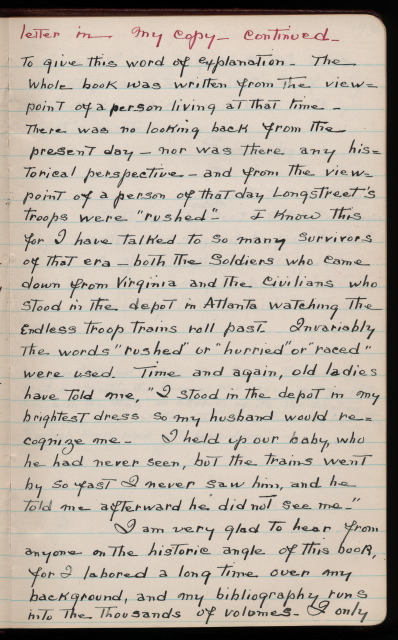 letter in my copy - continued -
to give this word of explanation - The
whole book was written from the view=
point of a person living at that time -
There was no looking back from the
present day - nor was there any his=
torical perspective - and from the view=
point of a person of that day Longstreet's
troops were "rushed" - I know this
for I have talked to so many survivors
of that era - both the Soldiers who came
down from Virginia and the Civilians who
stood in the depot in Atlanta watching the
Endless troop trains roll past. Invariably
the words "rushed" or "hurried" or "raced"
were used. Time and again, old ladies
have told me, "I stood in the depot in my
brightest dress so my husband would re=
cognize me - I held up our baby, who
he had never seen, but the trains went
by so fast I never saw him, and he
told me afterward he did not see me -"
I am very glad to hear from
anyone on the historic angle of this book,
for I labored a long time over my
background, and my bibliography runs
into the thousands of volumes - I only